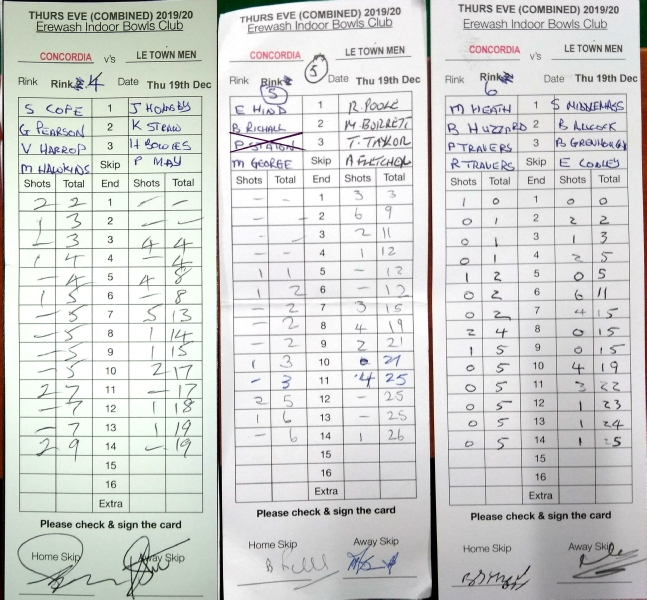 THURS EVE (COMBINED) 2019/20
Erewash Indoor Bowls Club
CONCORDIA v's LE TOWN MEN
Rink Rink 4 Date Thu 19th Dec
S COPE 1 J HORNSBY
G PEARSON 2 K STRAW
V HARROP 3 H BOWLES
M HAWKINS Skip P MAY
Shots Total End Shots Total
2 2 1 - -
1 3 2 - -
- 3 3 4 4
1 4 4 - 4
- 4 5 4 8
1 5 6 - 8
- 5 7 5 13
- 5 8 1 14
- 5 9 1 15
- 5 10 2 17
2 7 11 - 17
- 7 12 1 18
- 7 13 1 19
2 9 14 - 19
15
16
Extra
Please check & sign the card
Home Skip Away Skip
THURS EVE (COMBINED) 2019/20
Erewash Indoor Bowls Club
CONCORDIA v's LE TOWN MEN
Rink Rink 5 Date Thu 19th Dec
5
E HIND 1 R. POOLE
B RICHALL 2 M. BURRETT
P STATON 3 T. TAYLOR
M GEORGE Skip A FLETCHER
Shots Total End Shots Total
- - 1 3 3
- - 2 6 9
- 3 2 11
- - 4 1 12
1 1 5 - 12
1 2 6 - 12
- 2 7 3 15
- 2 8 4 19
- 2 9 2 21
1 3 10 21
- 3 11 4 25
2 5 12 - 25
1 6 13 - 25
- 6 14 1 26
15
16
Extra
Please check & sign the card
Home Skip Away Skip
THURS EVE (COMBINED) 2019/20
Erewash Indoor Bowls Club
CONCORDIA v's LE TOWN MEN
Rink Rink 6 Date Thu 19th Dec
M HEATH 1 S MIDDLEMASS
B HUZZARD 2 B ALLCOCK
P TRAVERS 3 B GREENHOUGH
R TRAVERS Skip E COBLEY
Shots Total End Shots Total
1 0 1 0 0
0 1 2 2 2
0 1 3 1 3
0 1 4 2 5
1 2 5 0 5
0 2 6 6 11
0 2 7 4 15
2 4 8 0 15
1 5 9 0 15
0 5 10 4 19
0 5 11 3 22
0 5 12 1 23
0 5 13 1 24
0 5 14 1 25
15
16
Extra
Please check & sign the card
Home Skip Away Skip